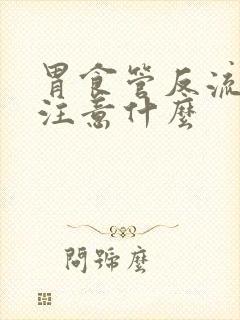 胃食管反流
注意什麼
問號麼